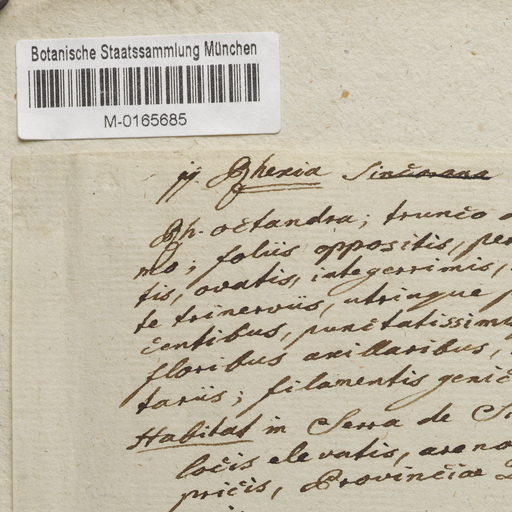 Botanische Staatssammlung München
M-0165685
Rhexia
Rh. octandra; trunco
mo; foliis oppositis, per
tis, ovatis, integerrimis,
te trinerviis, utrinque p
centibus, punctatissimis
floribus axillaribus,
tariis; filamentis genic
Habitat in Serra de S
locis elevatis, areno
pricis, Provinciæ